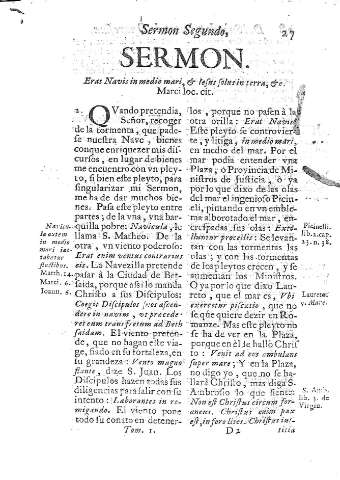 Sermon Segundo,
27
SERMON.
Erat Navis in medio mari, & Iesus solus in terra, &c.
Marci loc. cit.
1. QVando pretendia,
Señor, recoger
de la tormenta, que pade-
se nuestra Nave, bienes
conque enriquezer mis dis-
cursos, en lugar de bienes
me encuentro con vn pley-
to, si bien este pleyto, para
singularizar mi Sermon,
me ha de dar muchos bie-
nes. Passa este pleyto entre
partes; de la vna, vna bar-
quilla pobre; Navicula, le
llama S. Matheo. De la
otra, vn viento poderoso:
Erat enim ventus contrarius
eis. La Navezilla pretende
passar á la Ciudad de Bet-
saida, porque assi lo manda
Christo a sus Discipulos:
Coegit Discipulos suos ascen-
dere in navim, vt præcede-
rent eum transfretum ad Beth
saidam. El viento preten-
de, que no hagan este via-
ge, fiado en su fortaleza, en
su grandeza: Vento magno
flante, dize S. Juan. Los
Discipulos hazen todas sus
diligencias para salir con su
intento: Laborantes in re-
migando. El viento pone
todo su conato en detener-
Navicu-
la autem
in medio
mari iac-
tabatur
fluctibus.
Math. 14.
Marci. 6.
Ioann. 6.
Tom. 1.
los, porque no passen á la
otra orilla: Erat Navis
Este pleyto se controvier
te, y litiga, in medio mari,
en medio del mar. Por el
mar podia entender vna
Plaza, ò Provincia de Mi-
nistros de Justicia, ò ya
por lo que dixo de las olas
del mar el ingenioso Picin-
eli, pintando en vn emble-
ma alborotado el mar, en-
crespadas sus olas: Extol-
luntur procellis: Se levan-
tan con las tormentas las
olas; y con las tormentas
de los pleytos crecen, y se
aumentan los Ministros.
O ya por lo que dixo Lau-
reto, que el mar es, Vbi
exercetur piscatio, que no
se que quiere dezir en Ro-
manze. Mas este pleyto no
se ha de ver en la Plaza,
porque en èl se hallò Chris
to: Venit ad eos ambulans
super mare; Y en la Plaza,
no digo yo, que no se ha-
llarà Christo, mas diga S.
Ambrosio lo que siente
Non est Christus circum fo-
raneus. Christus enim pax
est, in foro lites. Christus ius-
Picineli.
lib. 2. cap.
23. n. 38.
Lauretus
v. Mare.
S. Amb.
lib. 3. de
Virgin.
D 2
titia